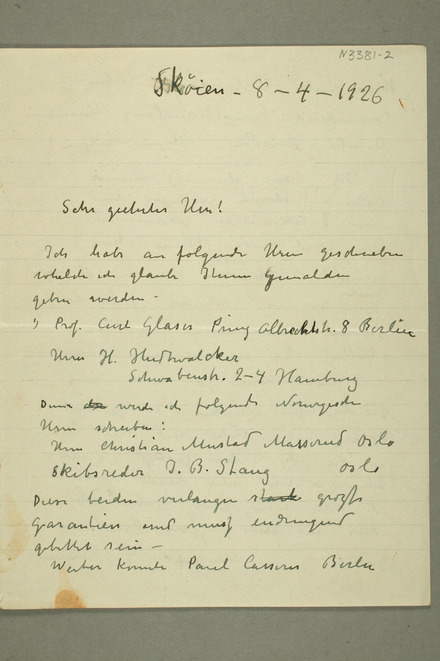 N3381-2
Sköien – 8 – 4 – 1926
Sehr geehrter Herr!
Ich habe an folgende Herrn geschrieben
welche ich glaube Ihnen Gemälden
geben werden –
1) Prof. Curt Glaser Prinz Albrechtstr. 8 Berlin
Herrn H. Hudtwalcker
Schwabenstr. 2–4 Hamburg
Dann werde ich folgende Norwegische
Herrn schreiben:
Herrn Christian Mustad Masserud Oslo
Skibsreder J. B. Stang Oslo
Diese beiden verlangen stark große
Garantien und muss eindringend
gebettet sein –
Weiter konnte Paul Cassirer Berlin